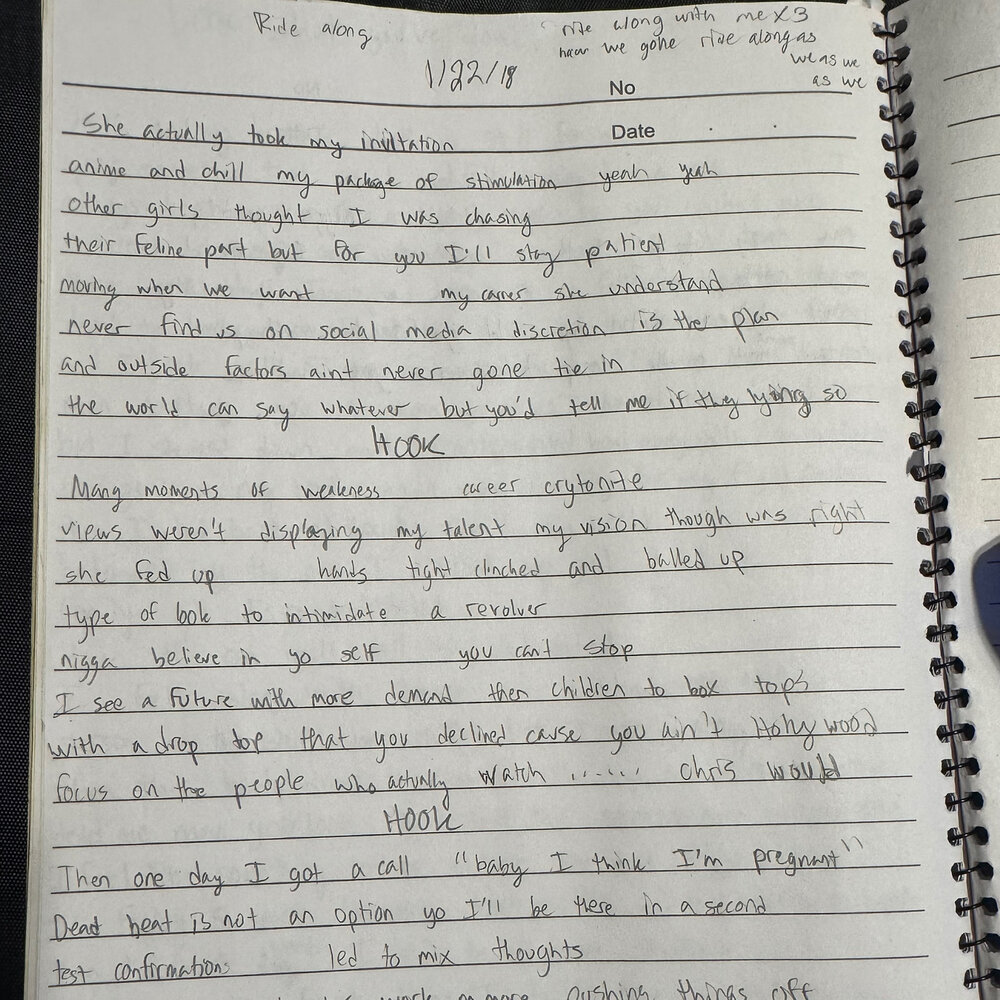 Ride along
rise along with me x3
we gone rise along as
we as we
as we
1/22/18
No
Date
She actually took my invitation
anime and chill my package of stimulation yeah yeah
other girls thought I was chasing
their feline part but for you I'll stay patient
moving when we want my carrer she understand
never find us on social media discretion is the plan
and outside factors aint never gone tie in
the world can say whatever but you'd tell me if they lying so
HOOK
Many moments of weakness career crytonite
views weren't displaying my talent my vision though was right
she fed up hands tight clinched and balled up
type of look to intimidate a revolver
nigga believe in yo self you cant stop
I see a future with more demand then children to box tops
with a drop top that you declined cause you ain't Hollywood
focus on the people who actually watch ...... Chris would
HOOK
Then one day I got a call "baby I think I'm pregnant"
Dead beat is not an option yo I'll be there in a second
test confirmations led to mix thoughts
work no more pushing things off